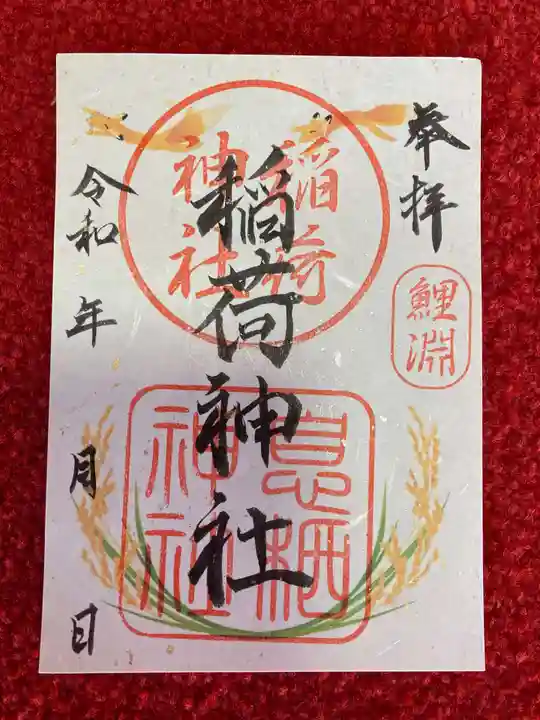 奉拝
鯉淵
稲荷神社
稲荷
神社
息栖
神社
令和 年 月 日